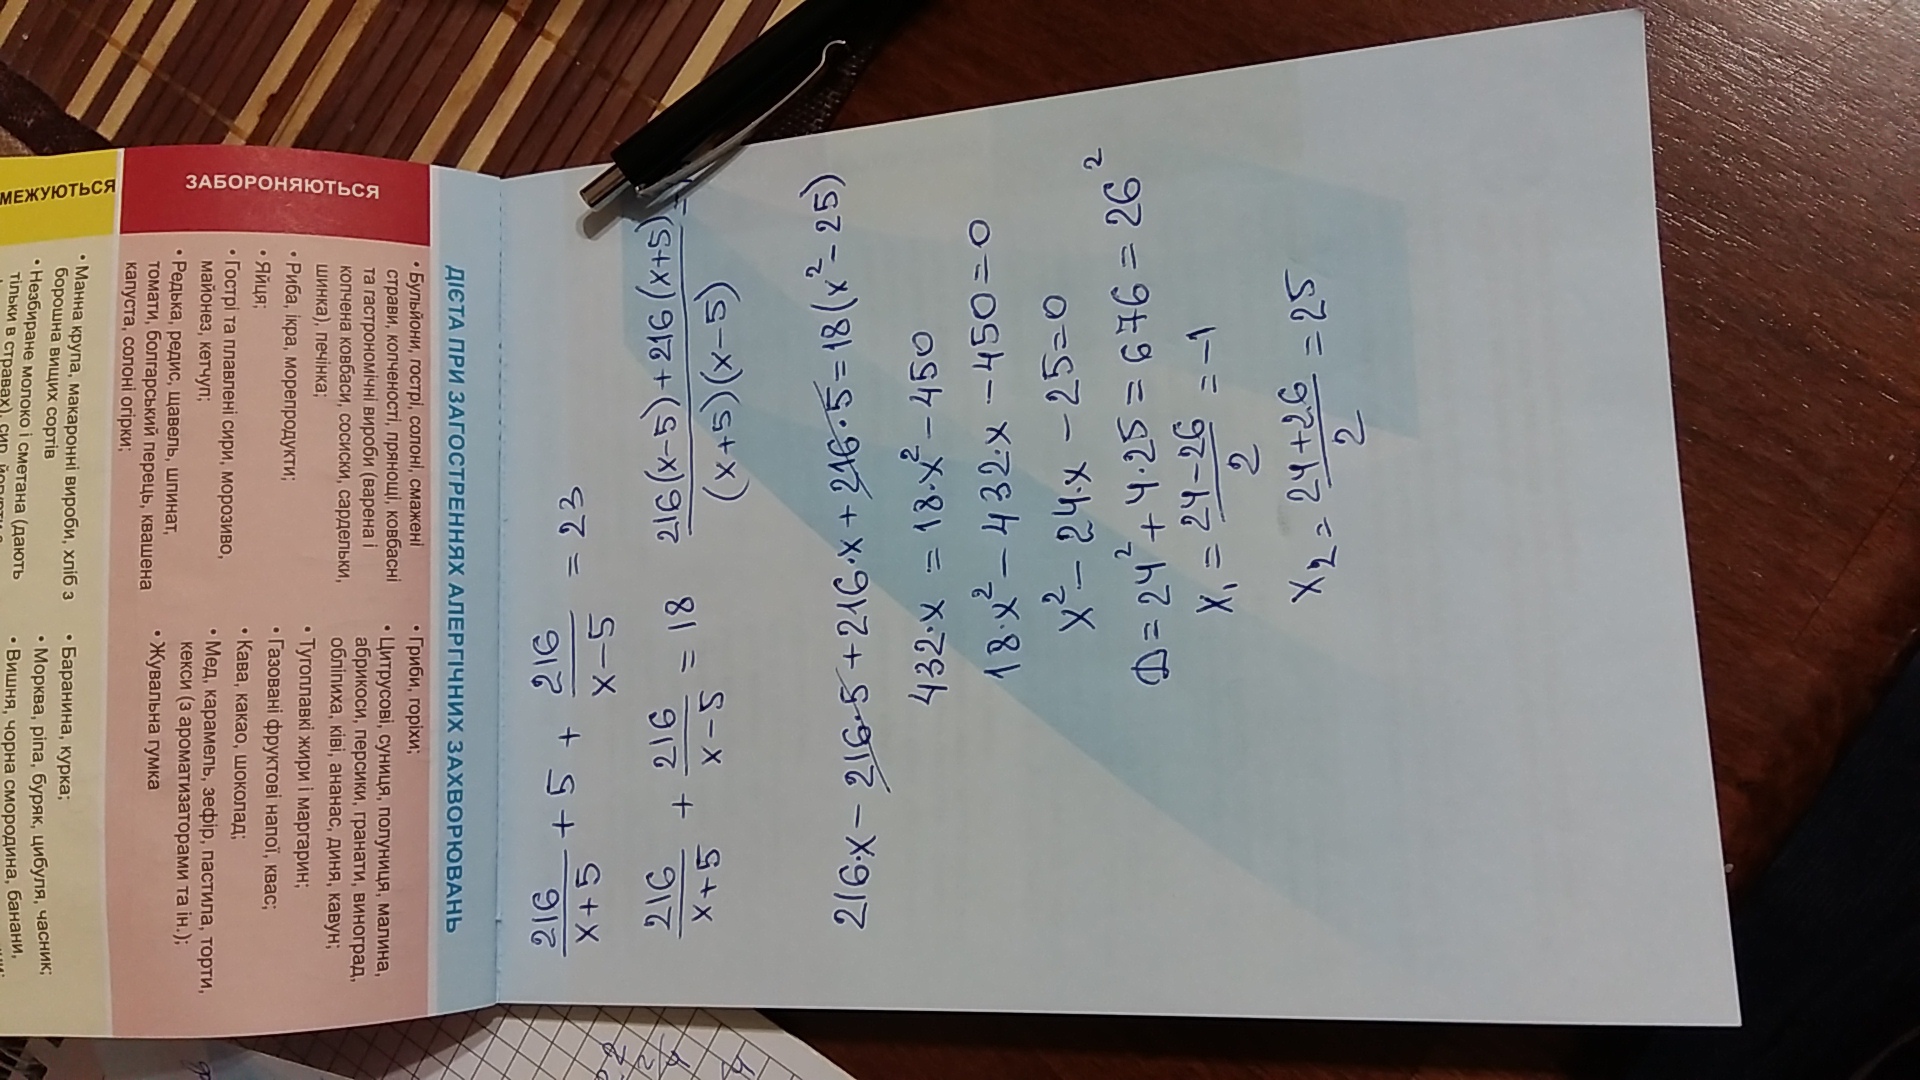 МЕЖУЮТЬСЯ
• Манна крупа, макаронні вироби, хліб з
борошна вищих сортів
• Незбиране молоко і сметана (дають
тільки в стравах), сир, йогурти з
• Баранина, курка;
• Морква, ріпа, буряк, цибуля, часник;
• Вишня, чорна смородина, банани,
ЗАБОРОНЯЮТЬСЯ
• Бульйони, гострі, солоні, смажені
страви, копченості, прянощі, ковбасні
та гастрономічні вироби (варена і
копчена ковбаси, сосиски, сардельки,
шинка), печінка;
• Риба, ікра, морепродукти;
• Яйця;
• Гострі та плавлені сири, морозиво,
майонез, кетчуп;
• Редька, редис, щавель, шпинат,
томати, болгарський перець, квашена
капуста, солоні огірки;
• Гриби, горіхи;
• Цитрусові, суниця, полуниця, малина,
абрикоси, персики, гранати, виноград,
обліпиха, ківі, ананас, диня, кавун;
• Тугоплавкі жири і маргарин;
• Газовані фруктові напої, квас;
• Кава, какао, шоколад;
• Мед, карамель, зефір, пастила, торти,
кекси (з ароматизаторами та ін.);
• Жувальна гумка
ДІЄТА ПРИ ЗАГОСТРЕННЯХ АЛЕРГІЧНИХ ЗАХВОРЮВАНЬ
216/(x+5) + 5 + 216/(x-5) = 23
216/(x+5) + 216/(x-5) = 18   (216(x-5) + 216(x+5))/((x+5)(x-5))
216·x - 216·5 + 216·x + 216·5 = 18(x² - 25)
432·x = 18·x² - 450
18·x² - 432·x - 450 = 0
x² - 24·x - 25 = 0
D = 24² + 4·25 = 676 = 26²
x₁ = (24-26)/2 = -1
x₂ = (24+26)/2 = 25